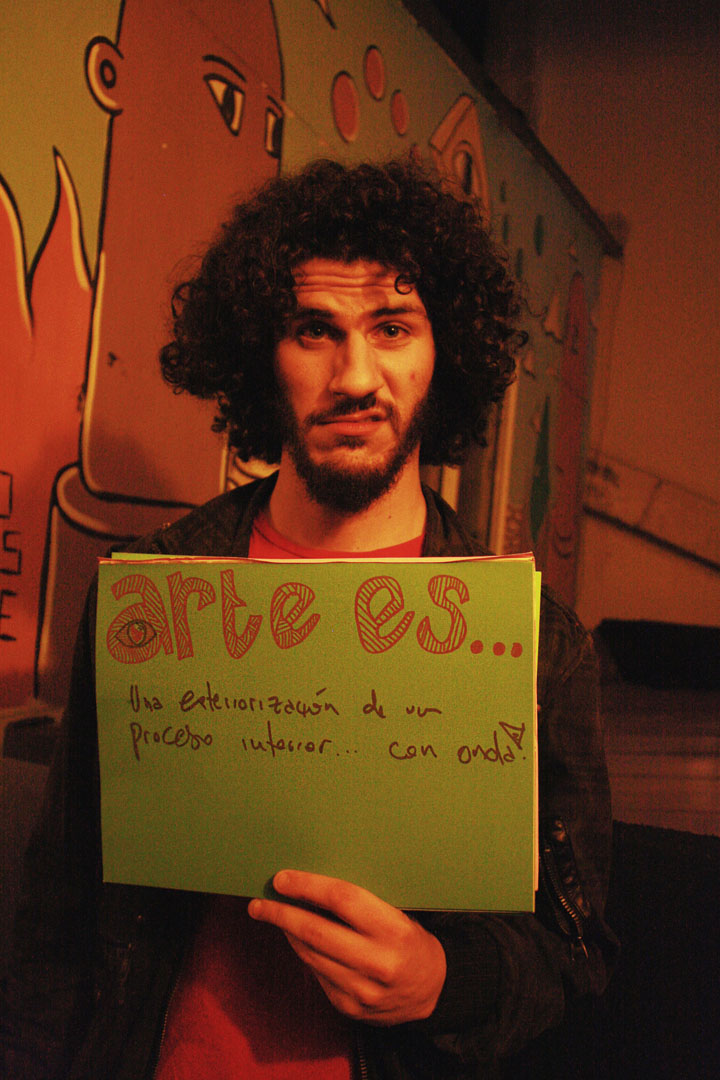 arte es...
Una exteriorización de un
proceso interior... con onda!